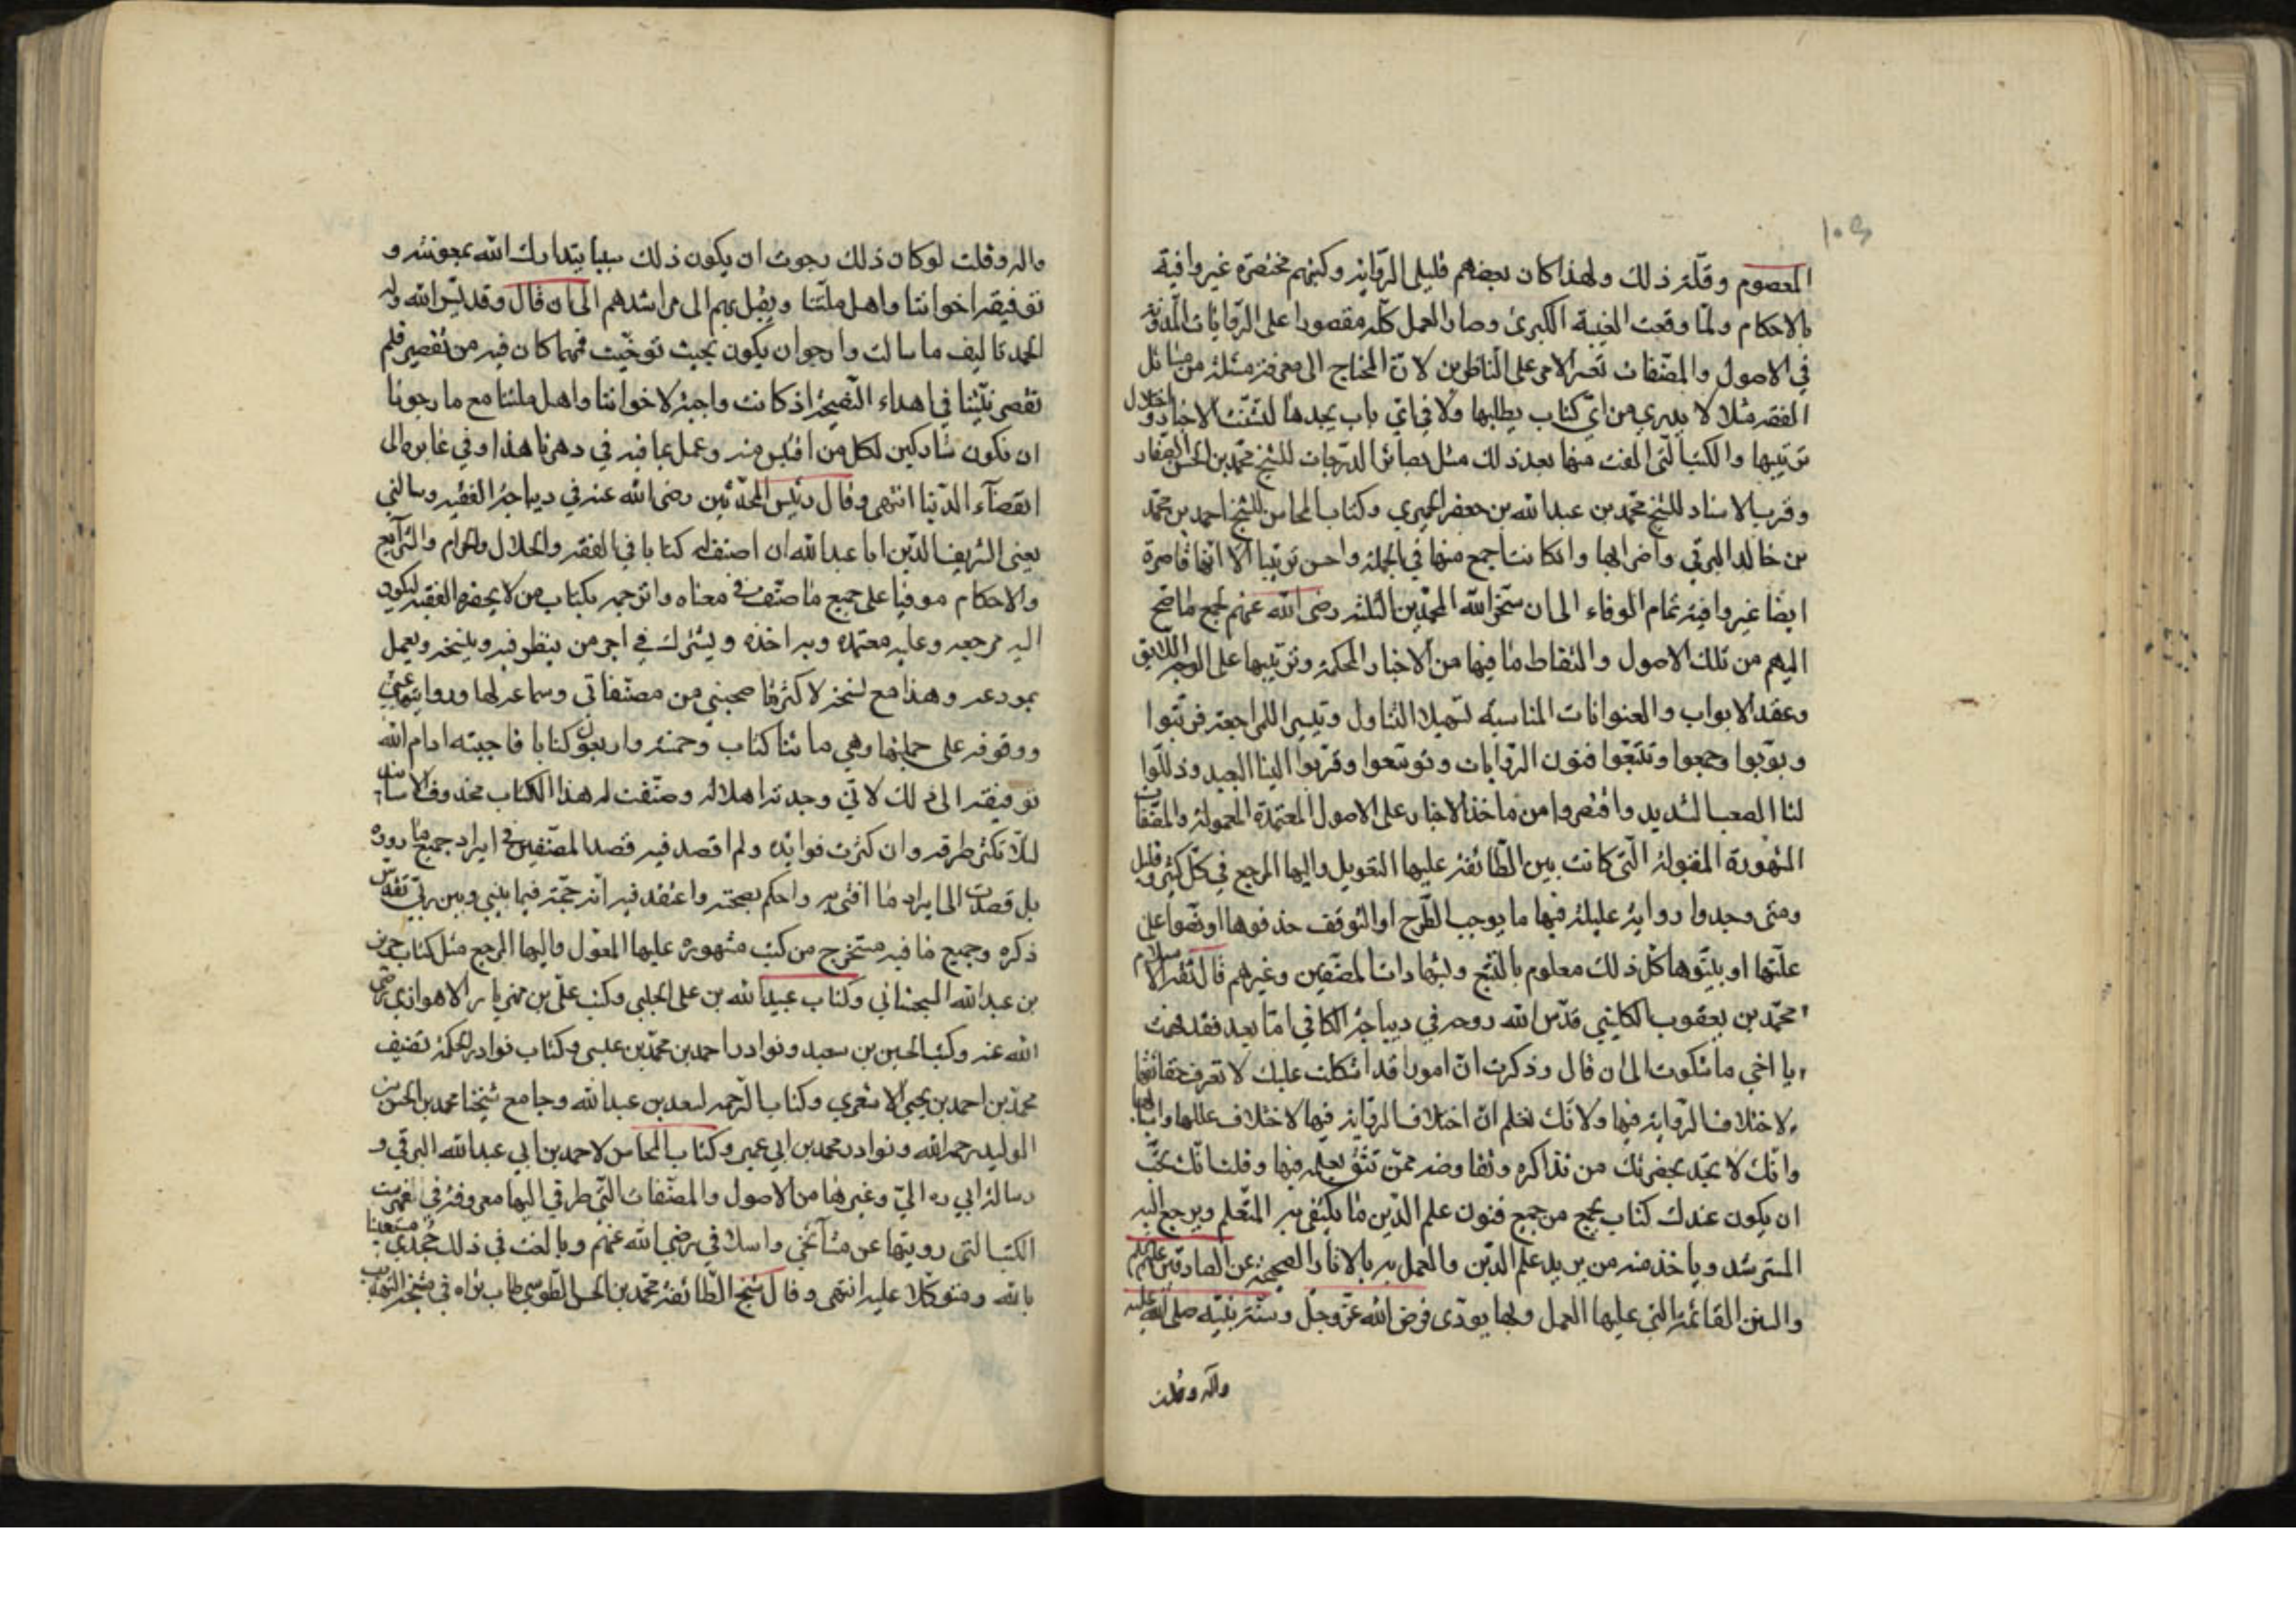 المعصوم وقلة ذلك ولهذا كان بعضهم قليلى الرواية وكتبهم مختصرة غير وافية
بالاحكام ولما وقعت الغيبة الكبرى وصار العمل كله مقصورا على الروايات المدونة
في الاصول والمصنفات تعسر الامر على الناظرين لان المحتاج الى معرفة مسئلة من مسائل
الفقه مثلا لا يدري من اي كتاب يطلبها ولا في اي باب يجدها لتشتت الاخبار واختلال
ترتيبها والكتب التى الفت منها بعد ذلك مثل بصائر الدرجات للشيخ محمد بن الحسن الصفار
وقرب الاسناد للشيخ محمد بن عبد الله بن جعفر الحميري وكتاب المحاسن للشيخ احمد بن محمد
بن خالد البرقي واضرابها وان كانت اجمع منها في الجملة واحسن ترتيبا الا انها قاصرة
ايضا غير وافية تمام الوفاء الى ان سخر الله المحمدين الثلثه رضى الله عنهم لجمع ما صح
اليهم من تلك الاصول والتقاط ما فيها من الاخبار المحكمة وترتيبها على الوجه اللايق
وعقد الابواب والعنوانات المناسبه تسهيلا للتناول وتيسيرا للمراجعة فرتبوا
وبوبوا وجمعوا وتتبعوا فنون الروايات وتوسعوا وقربوا الينا البعيد وذللوا
لنا الصعب الشديد واقتصروا من ماخذ الاخبار على الاصول المعتمدة المعمولة والمصنفات
المشهورة المقبولة التى كانت بين الطائفة عليها التعويل واليها المرجع في كل كثير وقليل
ومتى وجدوا رواية عليلة فيها ما يوجب الطرح او التوقف حذفوها او نصوا على
علتها او بينوها كل ذلك معلوم بالتتبع وشهادات المصنفين وغيرهم قال ثقة الاسلام
محمد بن يعقوب الكليني قدس الله روحه في ديباجة الكافي اما بعد فقد فهمت
يا اخي ما شكوت الى ان قال وذكرت ان امورا قد اشكلت عليك لا تعرف حقائقها
لاختلاف الرواية فيها ولانك تعلم ان اختلاف الرواية فيها لاختلاف عللها واسبابها
وانك لا تجد بحضرتك من تذاكره وتفاوضه ممن تثق بعلمه فيها وقلت انك تحب
ان يكون عندك كتاب يجمع من جميع فنون علم الدين ما يكتفى به المتعلم ويرجع اليه
المسترشد وياخذ منه من يريد علم الدين والعمل به بالاثار الصحيحة عن الصادقين عليهم السلام
والسنن القائمة التي عليها العمل وبها يودى فرض الله عز وجل وسنة نبيه صلى الله عليه
واله وقلت
واله وقلت لو كان ذلك رجوت ان يكون ذلك سببا يتدارك الله بمعونته و
توفيقه اخواننا واهل ملتنا ويقبل بهم الى مراشدهم الى ان قال وقد يسر الله وله
الحمد تاليف ما سالت وارجو ان يكون بحيث توخيت فمهما كان فيه من تقصير فلم
تقصر نيتنا في اهداء النصيحة اذ كانت واجبة لاخواننا واهل ملتنا مع ما رجونا
ان نكون مشاركين لكل من اقتبس منه وعمل بما فيه في دهرنا هذا وفي غابره الى
انقضآء الدنيا انتهى وقال رئيس المحدثين رضى الله عنه في ديباجة الفقيه وسالني
يعنى الشريف الدين ابا عبد الله ان اصنف له كتابا في الفقه والحلال والحرام والشرآيع
والاحكام موفيا على جميع ما صنفت في معناه واترجمه بكتاب من لا يحضره الفقيه ليكون
اليه مرجعه وعليه معتمده وبه اخذه ويشترك في اجر من ينظر فيه وينسخه ويعمل
بمودعه وهذا مع نسخه لاكثر ما صحبني من مصنفاتي وسماعه لها وروايتها عني
ووقوفه على جملتها وهي مائتا كتاب وخمسة واربعون كتابا فاجبته ادام الله
توفيقه الى ذلك لاني وجدته اهلا له وصنفت له هذا الكتاب محذوف الاسانيد
لئلا تكثر طرقه وان كثرت فوائده ولم اقصد فيه قصد المصنفين في ايراد جميع ما رووه
بل قصدت الى ايراد ما افتى به واحكم بصحته واعتقد فيه انه حجة فيما بيني وبين ربي تقدس
ذكره وجميع ما فيه مستخرج من كتب مشهوره عليها المعول واليها المرجع مثل كتاب حريز
بن عبد الله السجستاني وكتاب عبيد الله بن على الحلبي وكتب على بن مهزيار الاهوازي رضى
الله عنه وكتب الحسين بن سعيد ونوادر احمد بن محمد بن عيسى وكتاب نوادر الحكمة تصنيف
محمد بن احمد بن يحيى الاشعري وكتاب الرحمه لسعد بن عبد الله وجامع شيخنا محمد بن الحسن بن
الوليد رحمه الله ونوادر محمد بن ابي عمير وكتاب المحاسن لاحمد بن ابي عبد الله البرقي و
رسالة ابي ره الي وغيرها من الاصول والمصنفات التي طرقي اليها معروفة في فهرست
الكتب التى رويتها عن مشآئخي واسلافي رضي الله عنهم وبالغت في ذلك جهدي مستعينا
بالله ومتوكلا عليه انتهى وقال شيخ الطائفة محمد بن الحسن الطوسي طاب ثراه في مشيخة التهذيب